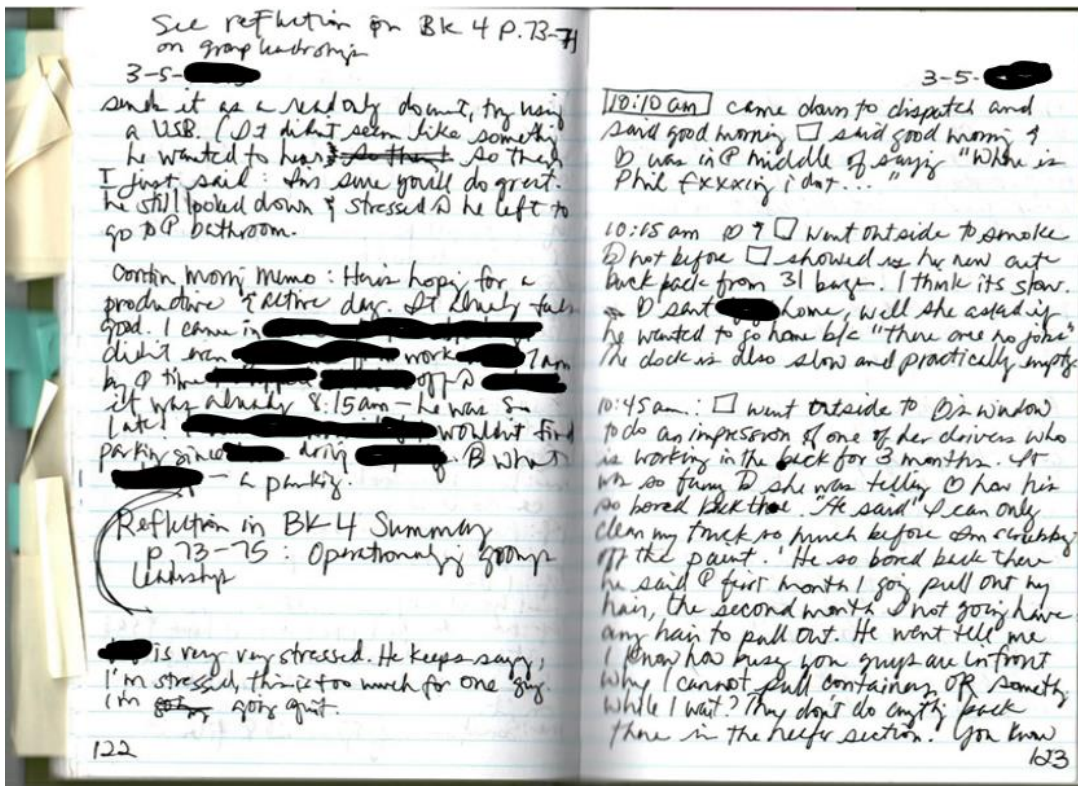 See reflection on Bk 4 P.73-74
on group leadership
3-5-
send it as a read only documt, try using
a USB. (It didn't seem like something
he wanted to hear so then
I just said: I'm sure you'll do great.
he still looked down & stressed he left to
go to bathroom.
Contin morng memo: Here's hoping for a
productive & active day. It already feels
good. I came in
didn't even work 7am
by time off
it was already 8:15am – he was so
late! wouldn't find
parkig since drivig what
– a parkig.
Reflection in BK 4 Summary
p. 73-75: Operationalizg groups
leadership
is very very stressed. He keeps sayg,
I'm stressed, this is too much for one guy.
I'm goig quit.
122
3-5-
10:10 am came down to dispatch and
said good morning □ said good morning &
was in middle of sayig "Where is
Phil fxxxing i dnt..."
10:15 am & □ went outside to smoke
not before □ showed us her new cute
back pack from 31 bags. I think its slow.
sent home, well she asked if
he wanted to go home b/c "There are no jobs"
The dock is also slow and practically empty.
10:45 am: □ went outside to window
to do an impression of one of her drivers who
is working in the back for 3 months. It
was so funny she was telling how his
so bored back there. "He said" I can only
clean my truck so much before Im scrubbg
off the paint.' He so bored back there
he said first month I goig pull out my
hair, the second month I not going have
any hair to pull out. He went tell me
I know how busy you guys are in front
why I cannot pull containers OR somethg
while I wait? They don't do anythg back
there in the reefer section. You know
123